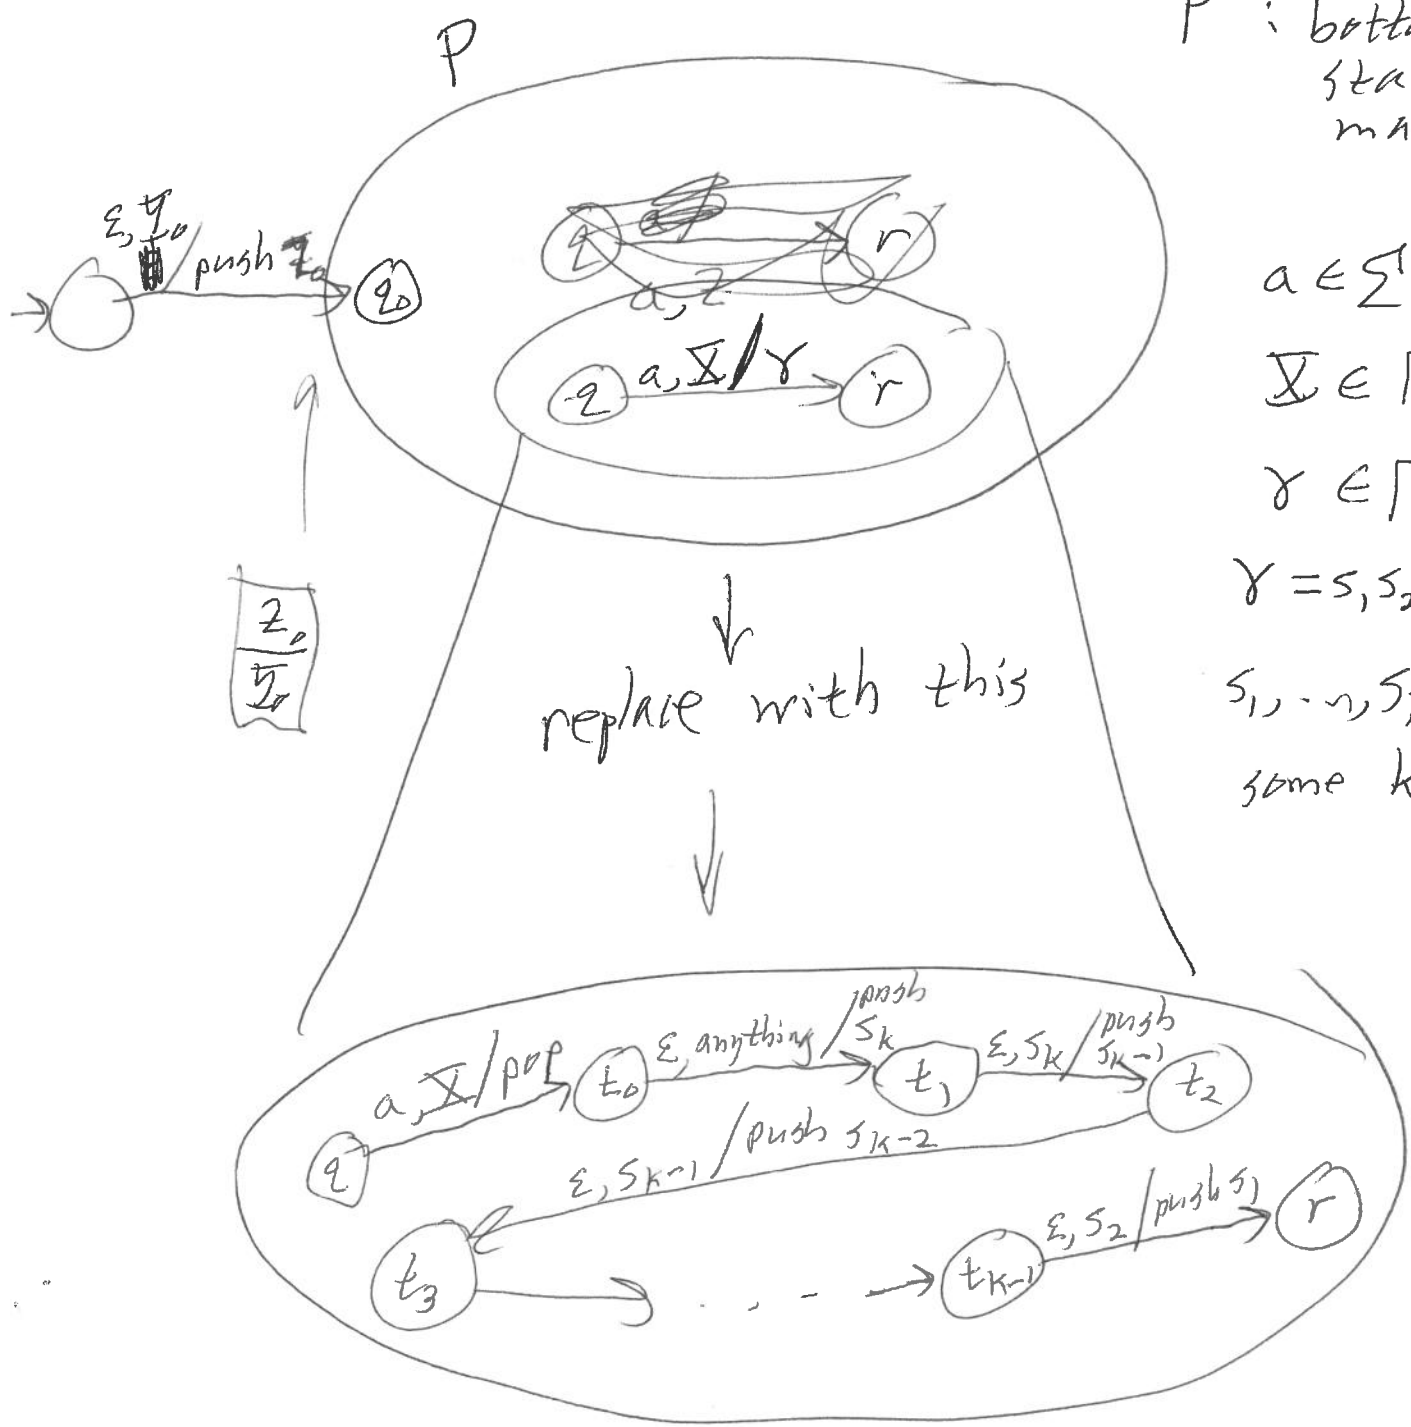 P
P : bott
sta
ma
q
r
a, z
q₀
a, X / γ
q
r
a ∈ Σ
X ∈ Γ
γ ∈ Γ
γ = s₁ s₂
s₁, ..., s
some k
Z₀
replace with this
a, X / pop
ε, anything / push sₖ
ε, sₖ / push sₖ₋₁
q
t₀
t₁
t₂
ε, sₖ₋₁ / push sₖ₋₂
t₃
. . . -
tₖ₋₁
ε, s₂ / push s₁
r